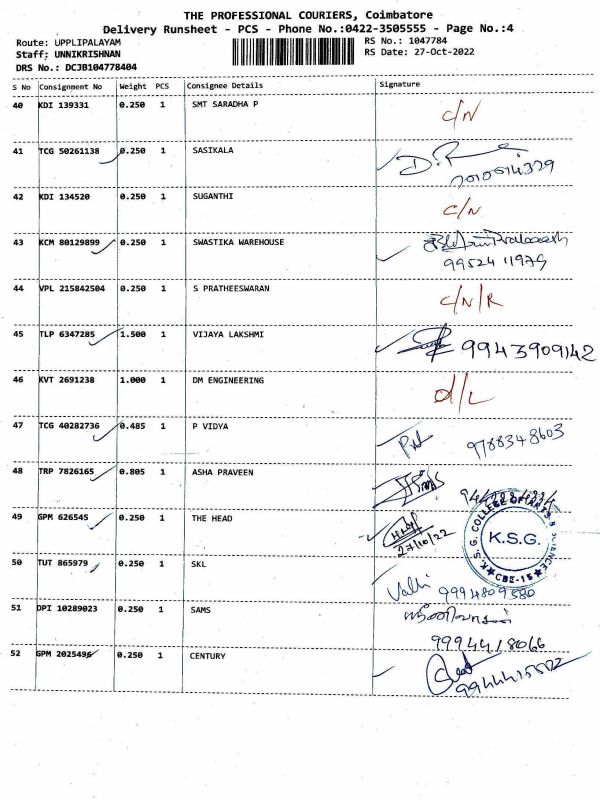 THE PROFESSIONAL COURIERS, Coimbatore
Delivery Runsheet - PCS - Phone No.:0422-3505555 - Page No.:4
Route: UPPLIPALAYAM
RS No.: 1047784
Staff: UNNIKRISHNAN
RS Date: 27-Oct-2022
DRS No.: DCJB104778404
S No Consignment No Weight PCS Consignee Details Signature
40 KDI 139331 0.250 1 SMT SARADHA P C/N
41 TCG 50261138 0.250 1 SASIKALA
42 KDI 134520 0.250 1 SUGANTHI C/N
43 KCM 80129899 0.250 1 SWASTIKA WAREHOUSE
99524 11979
44 VPL 215842504 0.250 1 S PRATHEESWARAN C/N/R
45 TLP 6347285 1.500 1 VIJAYA LAKSHMI 9943909142
46 KVT 2691238 1.000 1 DM ENGINEERING D/L
47 TCG 40282736 0.485 1 P VIDYA 9788348603
48 TRP 7826165 0.805 1 ASHA PRAVEEN
49 GPM 626545 0.250 1 THE HEAD
27/10/22
K.S.G. COLLEGE OF ARTS & SCIENCE
K.S.G.
CBE-15
50 TUT 865979 0.250 1 SKL Valli 9994809380
51 DPI 10289023 0.250 1 SAMS
9994418066
52 GPM 2025496 0.250 1 CENTURY